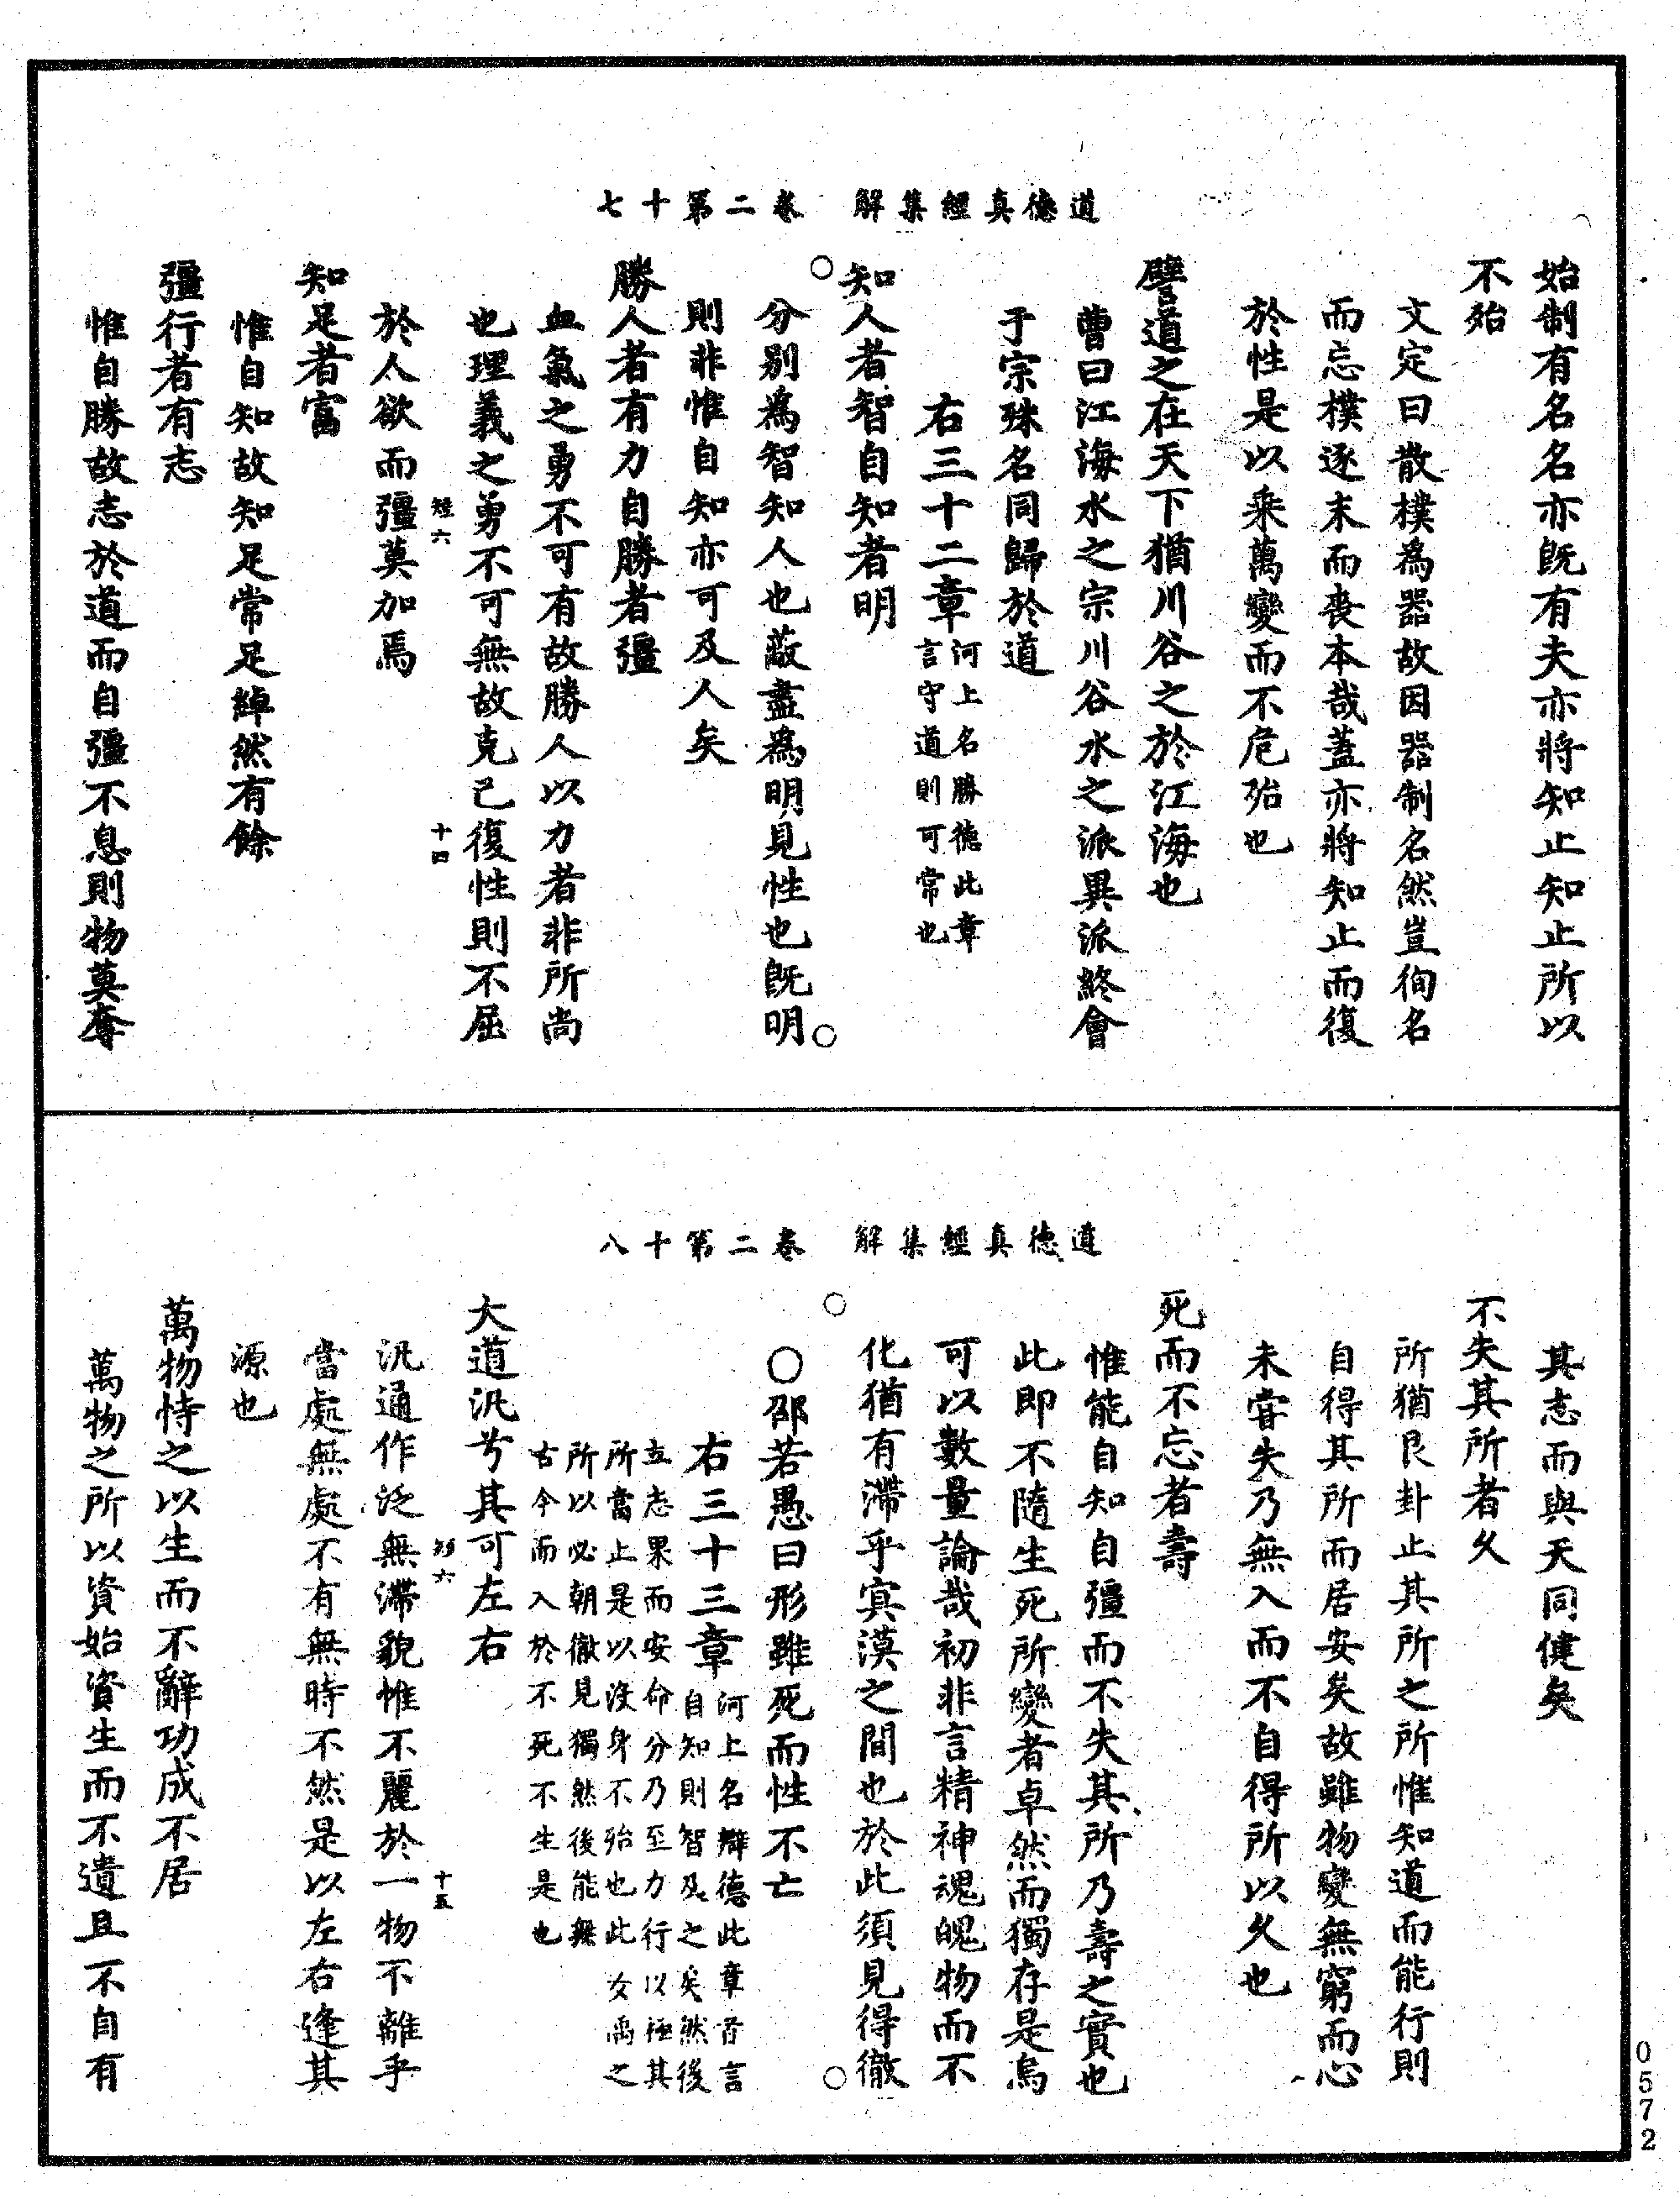 道德真經集解　卷二第十七
始制有名名亦既有夫亦將知止知止所以
不殆
文定曰散樸為器故因器制名然豈徇名
而忘樸逐末而喪本哉蓋亦將知止而復
於性是以乘萬變而不危殆也
譬道之在天下猶川谷之於江海也
曹曰江海水之宗川谷水之派異派終會
于宗殊名同歸於道
右三十二章河上名勝德此章
言守道則可常也
○知人者智自知者明
分別為智知人也蔽盡為明見性也既明○
則非惟自知亦可及人矣
勝人者有力自勝者彊
血氣之勇不可有故勝人以力者非所尚
也理義之勇不可無故克己復性則不屈
六　十四
於人欲而彊莫加焉
知足者富
惟自知故知足常足綽然有餘
彊行者有志
惟自勝故志於道而自彊不息則物莫奪
道德真經集解　卷二第十八
其志而與天同健矣
不失其所者久
所猶艮卦止其所之所惟知道而能行則
自得其所而居安矣故雖物變無窮而心
未嘗失乃無入而不自得所以久也
死而不忘者壽
惟能自知自彊而不失其所乃壽之實也
此即不隨生死所變者卓然而獨存是烏
可以數量論哉初非言精神魂魄物而不
化猶有滯乎冥漠之間也於此須見得徹
○　○
○邵若愚曰形雖死而性不亡
右三十三章河上名辯德此章首言
自知則智及之矣然後
立志果而安命分乃至力行以極其
所當止是以沒身不殆也此女禹之
所以必朝徹見獨然後能無
古今而入於不死不生是也
大道汎兮其可左右
六　十五
汎通作泛無滯貌惟不麗於一物不離乎
當處無處不有無時不然是以左右逢其
源也
萬物恃之以生而不辭功成不居
萬物之所以資始資生而不遺且不自有
0572